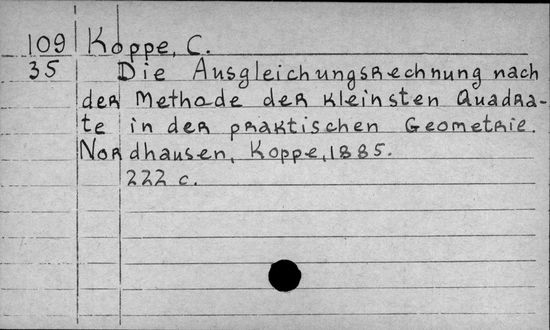 109 Koppe, C.
35 Die Ausgleichungsrechnung nach
der Methode der kleinsten Quadra-
te in der praktischen Geometrie.
Nordhausen, Koppe, 1885.
222 c.